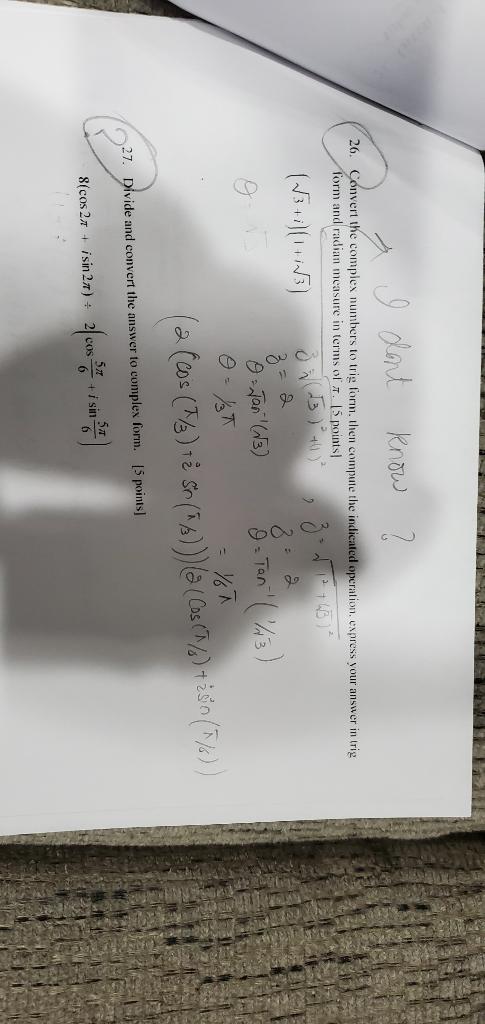 I dont know ?
26. Convert the complex numbers to trig form, then compute the indicated operation, express your answer in trig
form and radian measure in terms of π. [5 points]
(√3 + i)(1 + i√3)
z = √(√3)² + (1)² , z = √1² + (√3)²
z = 2 z = 2
θ = Tan⁻¹(√3) θ = Tan⁻¹(1/√3)
θ = 1/3 π = 1/6 π
(2 (cos (π/3) + i Sin (π/3))) (2 (Cos (π/6) + i Sin (π/6))
27. Divide and convert the answer to complex form. [5 points]
8(cos 2π + i sin 2π) ÷ 2(cos 5π/6 + i sin 5π/6)